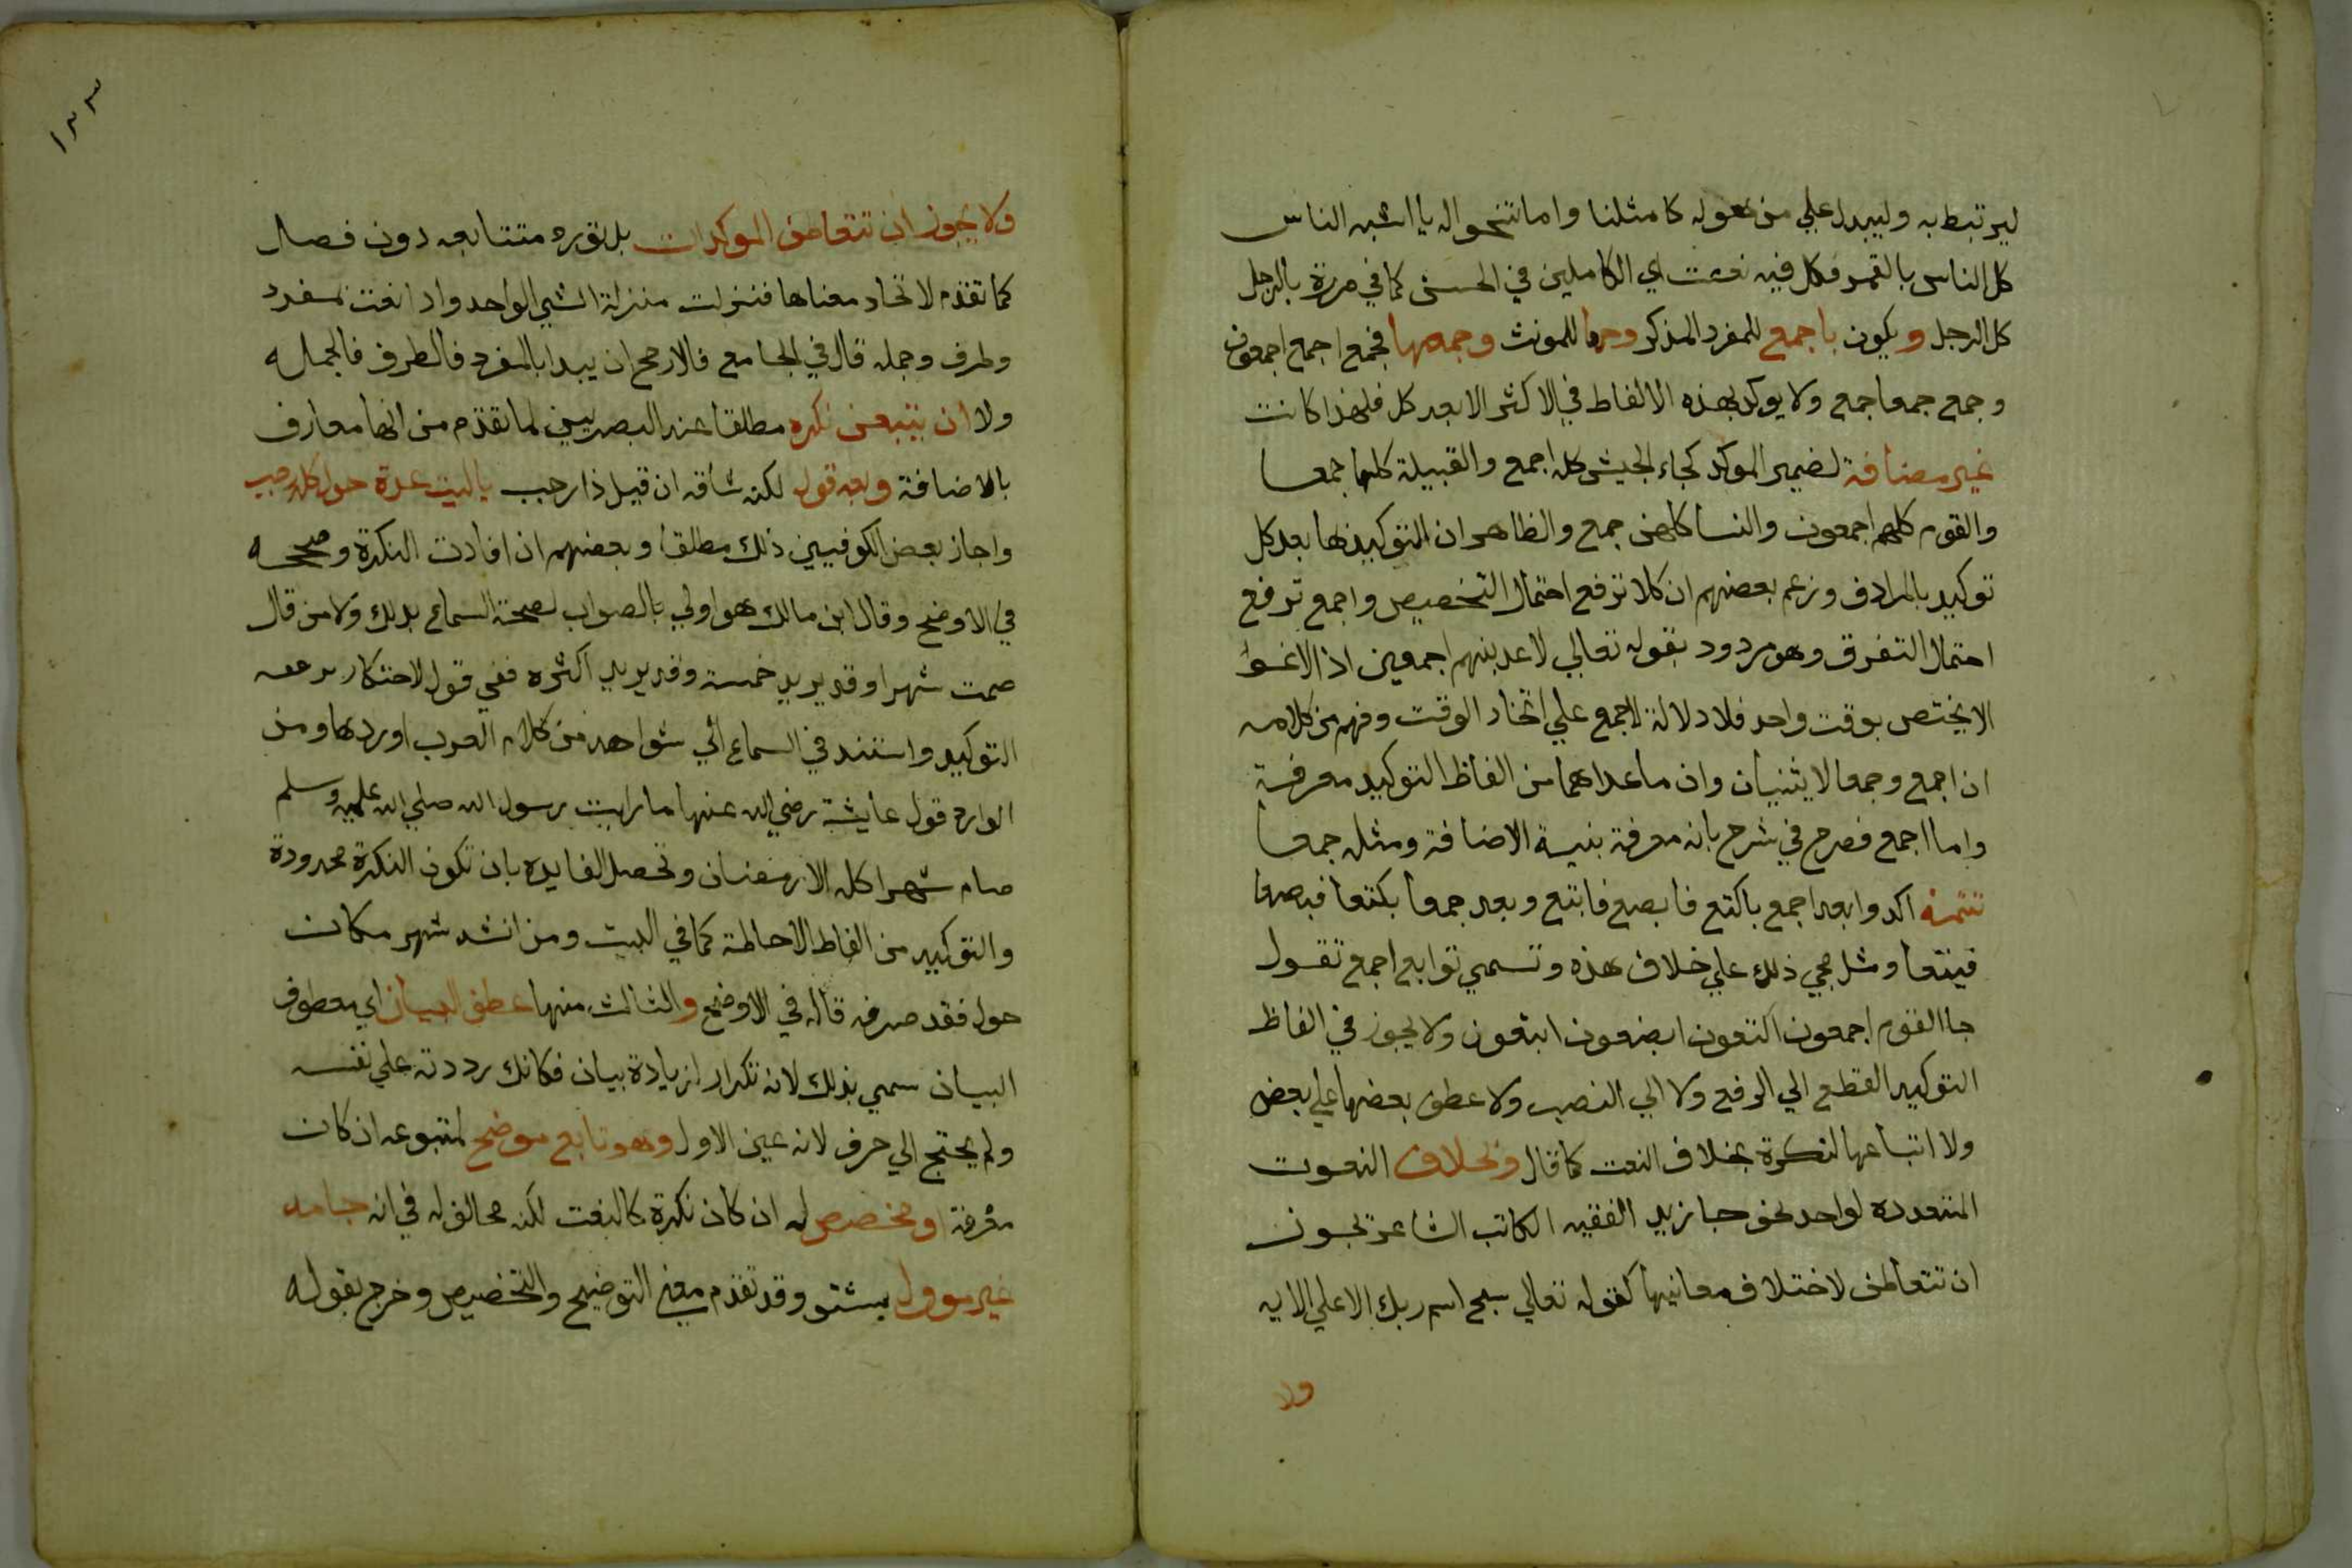 ليرتبط به وليبدل علي من هو له كا مثلنا واما نحو اله يا اشبه الناس
كل الناس بالقمر فكل فيه نعت اي الكاملين في الحسن كما في مررة بالرجل
كل الرجل و يكون باجمع للمفرد المذكر وجمعا للمونث وجمعهما فجمع اجمع اجمعون
وجمع جمعا جمع ولا يوكد بهذه الالفاط في الاكثر الا بعد كل فلهذا كانت
غير مضافة لضمير الموكد كجاء الجيش كله اجمع والقبيلة كلها جمعا
والقوم كلهم اجمعون والنسا كلهن جمع والظاهر ان التوكيد بها بعد كل
توكيد بالمرادف وزعم بعضهم ان كلا ترفع احتمال التخصيص واجمع ترفع
احتمال التفرق وهو مردود بقوله تعالي لاغوينهم اجمعين اذ الاغوا
لا يختص بوقت واحد فلا دلالة لاجمع علي اتحاد الوقت وفهم من كلامه
ان اجمع وجمعا لا يثنيان وان ما عداهما من الفاظ التوكيد معرفة
واما اجمع فصرح في شرح بانه معرفة بنية الاضافة ومثله جمعا
تتمة اكدوا بعد اجمع باكتع فابصع فابتع وبعد جمعا بكتعا فبصعا
فبتعا ومثل مجي ذلك علي خلاف هذه وتسمي توابع اجمع تقول
جا القوم اجمعون اكتعون ابصعون ابتعون ولا يجوز في الفاظ
التوكيد القطع الي الرفع ولا الي النصب ولا عطف بعضها علي بعض
ولا اتباعها لنكرة بخلاف النعت كما قال وبخلاف النعوت
المتعدده لواحد نحو جا زيد الفقيه الكاتب الشاعر يجوز
ان تتعاطف لاختلاف معانيها كقوله تعالي سبح اسم ربك الاعلي الايه
ولا
١٣٣
ولا يجوز ان تتعاطف الموكدات بل تورد متتابعه دون فصل
كما تقدم لاتحاد معناها فنزلت منزلة الشي الواحد واذا نعت بمفرد
وظرف وجمله قال في الجامع فالارجح ان يبدا بالمفرد فالظرف فالجمله
ولا ان يتبعن نكره مطلقا عند البصريين لما تقدم من انها معارف
بالاضافة وبعد قول لكنه شاقه ان قيل ذا رجب يا ليت عدة حول كله رجب
واجاز بعض الكوفيين ذلك مطلقا وبعضهم ان افادت النكرة وصححه
في الاوضح وقال ابن مالك هو اولي بالصواب لصحة السماع بذلك ولا من قال
صمت شهرا وقد يريد خمسة وقد يريد اكثره ففي قوله لاحتكار يرفعه
التوكيد واستند في السماع الي شواهد من كلام العرب اوردها ومن
الوارد قول عايشة رضي الله عنها ما رايت رسول الله صلي الله عليه وسلم
صام شهرا كله الا رمضان وتحصل الفايده بان تكون النكرة محدودة
والتوكيد من الفاظ الاحاطة كما في البيت ومن انشد شهر مكان
حول فقد صرفه قاله في الاوضح والثالث منها عطف البيان اي معطوف
البيان سمي بذلك لانه تكرار لزيادة بيان فكانك رددته علي نفسه
ولم يحتج الي حرف لانه عين الاول وهو تابع موضح لمتبوعه ان كان
معرفة او مخصص له ان كان نكرة كالنعت لكنه مخالف له في انه جامد
غير موول بمشتق وقد تقدم معني التوضيح والتخصيص وخرج بقوله